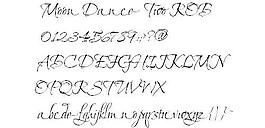 Moon Dance Two ROB
0123456789#?@
ABCDEFGHIJKLMN
OPQRSTUVYX
abcdefghijklm nopqrstuvwxyz